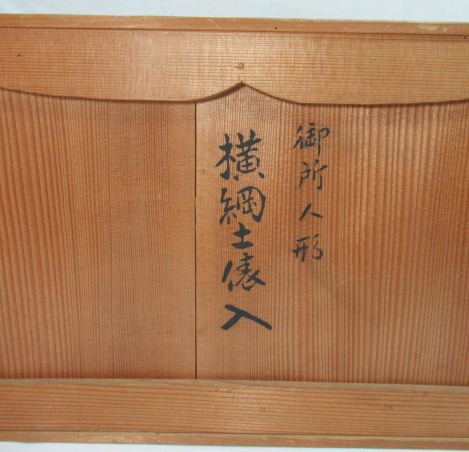 御所人形
横綱土俵入